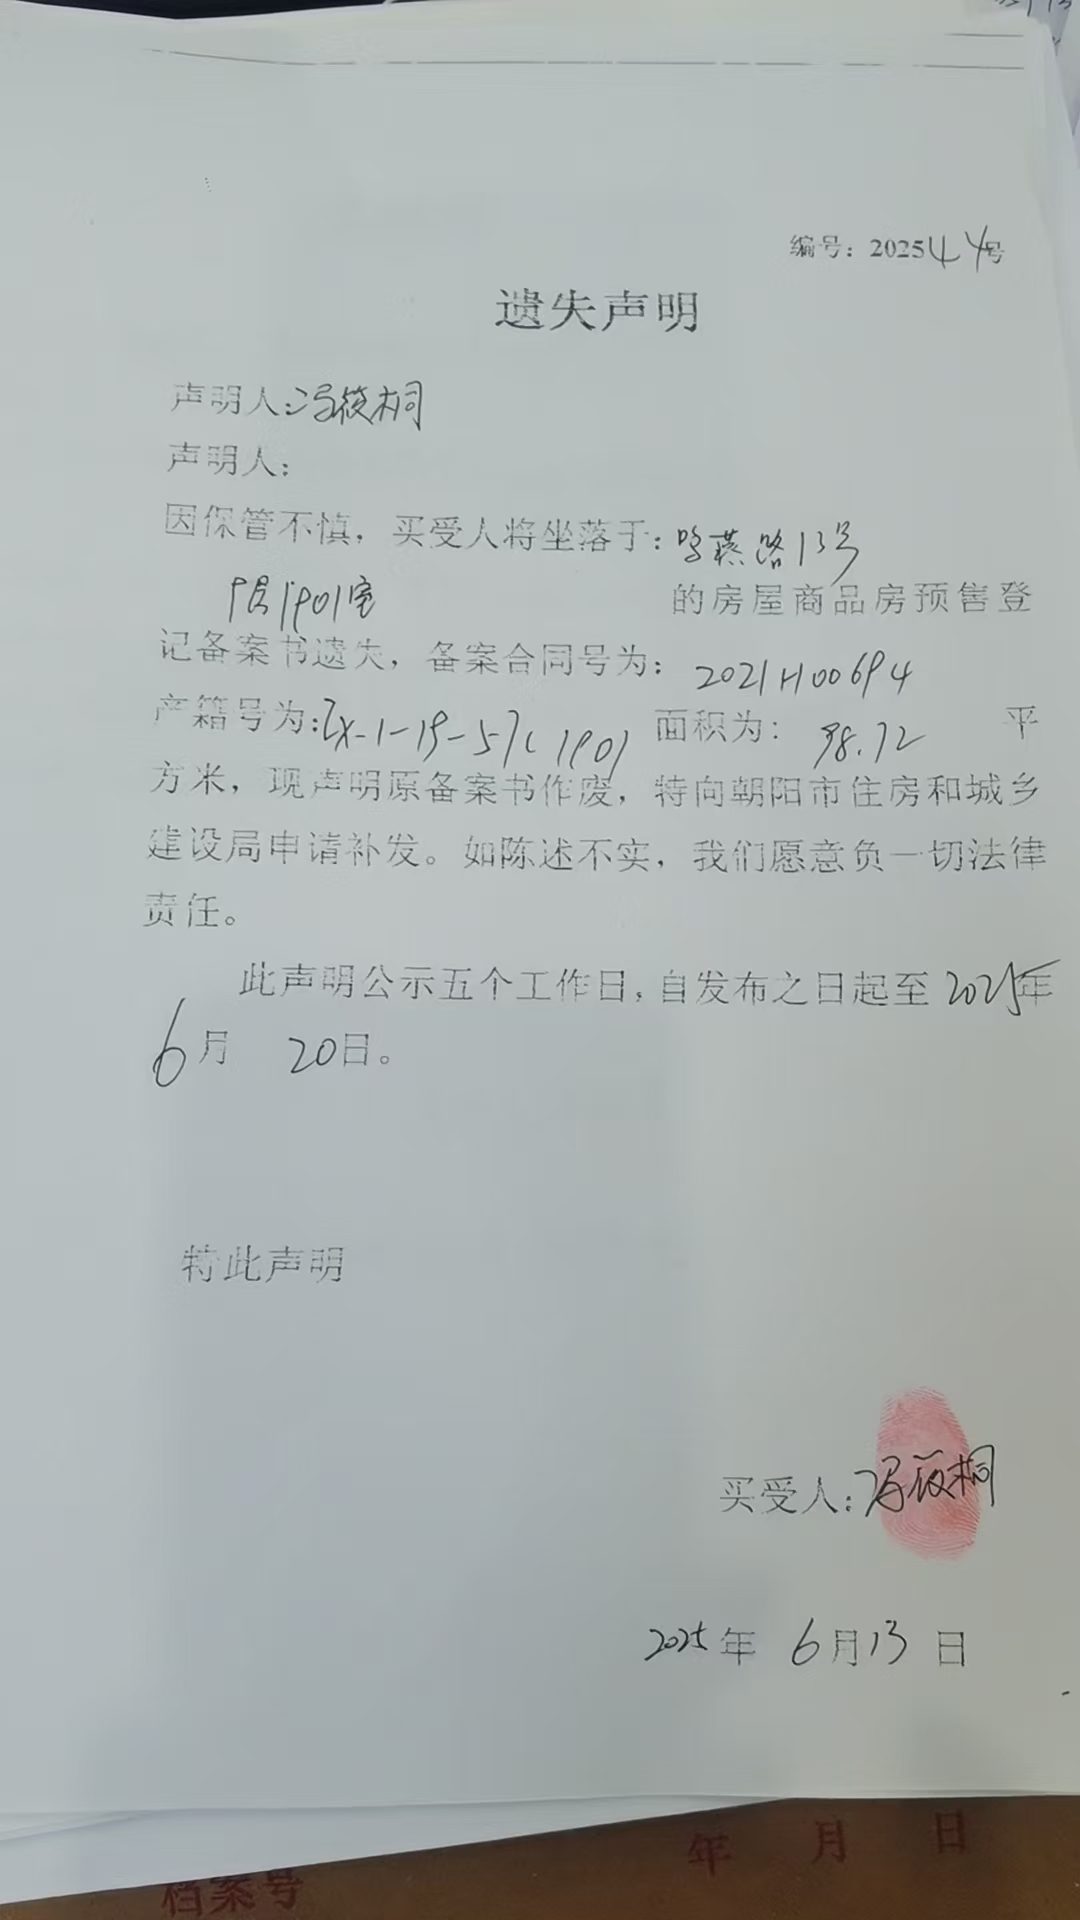 编号：202544号
遗失声明
声明人：冯筱桐
声明人：
因保管不慎，买受人将坐落于：鸣燕路13号
1901室 的房屋商品房预售登
记备案书遗失，备案合同号为：2021H00694
产籍号为： 1901 面积为：98.72 平
方米，现声明原备案书作废，特向朝阳市住房和城乡
建设局申请补发。如陈述不实，我们愿意负一切法律
责任。
此声明公示五个工作日，自发布之日起至2025年
6月 20日。
特此声明
买受人：冯筱桐
2025年 6月13日
年 月 日
档案号